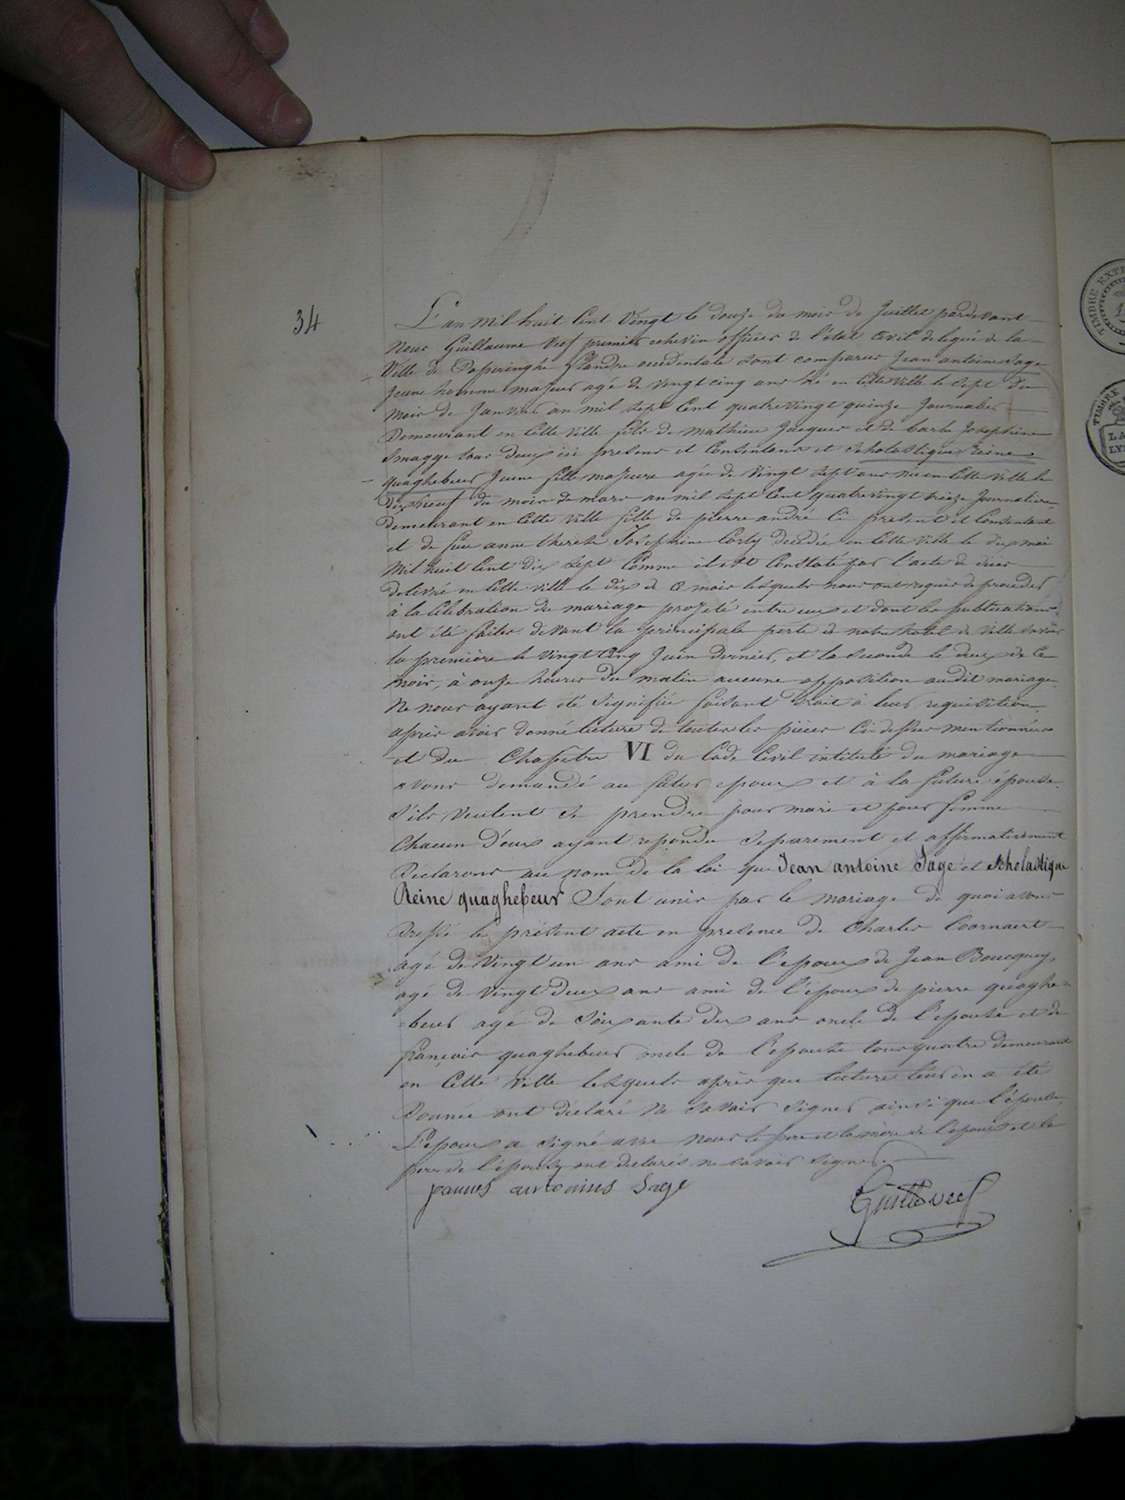 34
L'an mil huit Cent Vingt le douze du mois de Juillet pardevant
Nous Guillaume Vees premier echevin officier de l'état Civil delegué de la
Ville de Poperinghe Flandre occidentale sont comparus Jean antoine Sage
jeune homme majeur agé de vingt cinq ans né en Cette Ville le Sept du
mois de Janvier an mil Sept Cent quatrevingt quinze Journalier
Demeurant en Cette Ville fils de mathieu Jacques et de barbe Josephine
Smagge tous deux ici presens et Consentans et Scholastique Reine
quaghebeur Jeune fille majeure agée de Vingt Sept ans née en Cette Ville le
dix neuf du mois de mars an mil Sept Cent quatrevingt treize Journaliere
Demeurant en Cette Ville fille de pierre andré Ci present et Consentant
et de feue anne therese Josephine Corty decedée en Cette Ville le dix mai
mil huit Cent dix Sept Comme il est Constaté par l'acte de déces
delivré en Cette Ville le dix de ce mois lesquels nous ont requis de proceder
à la Célébration du mariage projeté entre eux et dont les publications
ont été faites devant la principale porte de notre hotel de Ville savoir
la première le Vingt Cinq Juin dernier, et la seconde le deux de Ce
mois, à onze heures du matin aucune opposition audit mariage
Ne nous ayant été Signifiée faisant droit à leur requisition
après avoir donné lecture de toutes les pièces Ci dessus mentionnées
et du Chapitre VI du Code Civil intitulé du mariage
avons demandé au futur epoux et à la future épouse
S'ils veulent se prendre pour mari et pour femme
Chacun D'eux ayant repondu Separement et affirmativement
Declarons au nom de la loi que Jean antoine Sage et Scholastique
Reine quaghebeur Sont unis par le mariage de quoi avons
dressé le présent acte en presence de Charles Coornaert
agé de Vingt un ans ami de l'epoux de Jean Boucquey,
agé de vingt Deux ans ami de l'époux de pierre quaghe=
=beur agé de Soixante dix ans oncle de l'epouse et de
françois quaghebeur oncle de l'epouse tous quatre demeurant
en Cette Ville lesquels après que lecture leur en a été
Donnée ont déclaré ne Savoir Signer ainsi que l'épouse,
L'epoux a Signé avec Nous le pere et la mère de l'epoux et le
pere de l'épouse ont declarés ne savoir Signer.
Sage
Guill Vees
TIMBRE EXTR
TIMBRE